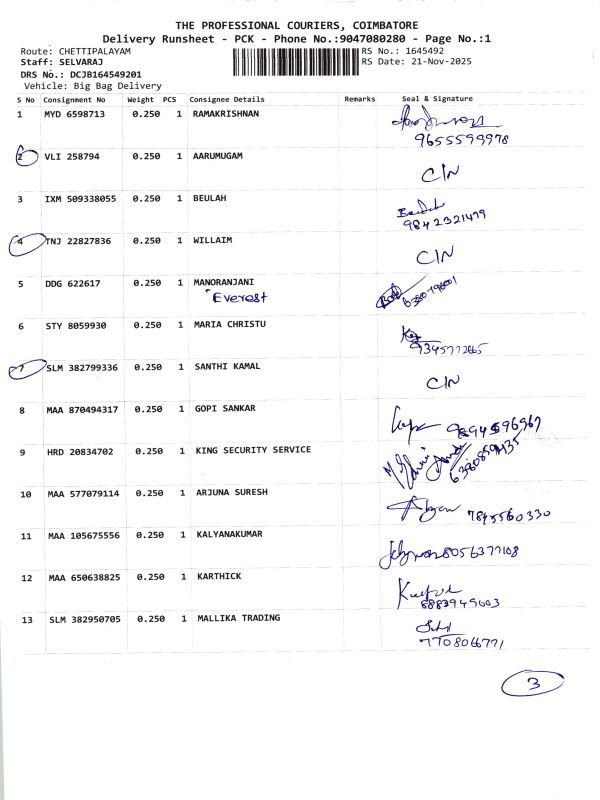 THE PROFESSIONAL COURIERS, COIMBATORE
Delivery Runsheet - PCK - Phone No.:9047080280 - Page No.:1
Route: CHETTIPALAYAM RS No.: 1645492
Staff: SELVARAJ RS Date: 21-Nov-2025
DRS No.: DCJB164549201
Vehicle: Big Bag Delivery
S No Consignment No Weight PCS Consignee Details Remarks Seal & Signature
1 MYD 6598713 0.250 1 RAMAKRISHNAN
9655599978
2 VLI 258794 0.250 1 AARUMUGAM
C/N
3 IXM 509338055 0.250 1 BEULAH
Beulah
9842321479
4 TNJ 22827836 0.250 1 WILLAIM
C/N
5 DDG 622617 0.250 1 MANORANJANI
Everest
6 STY 8059930 0.250 1 MARIA CHRISTU
7 SLM 382799336 0.250 1 SANTHI KAMAL
C/N
8 MAA 870494317 0.250 1 GOPI SANKAR
9894596967
9 HRD 20834702 0.250 1 KING SECURITY SERVICE
10 MAA 577079114 0.250 1 ARJUNA SURESH
7845560330
11 MAA 105675556 0.250 1 KALYANAKUMAR
8056377108
12 MAA 650638825 0.250 1 KARTHICK
8883949603
13 SLM 382950705 0.250 1 MALLIKA TRADING
7708066771
3